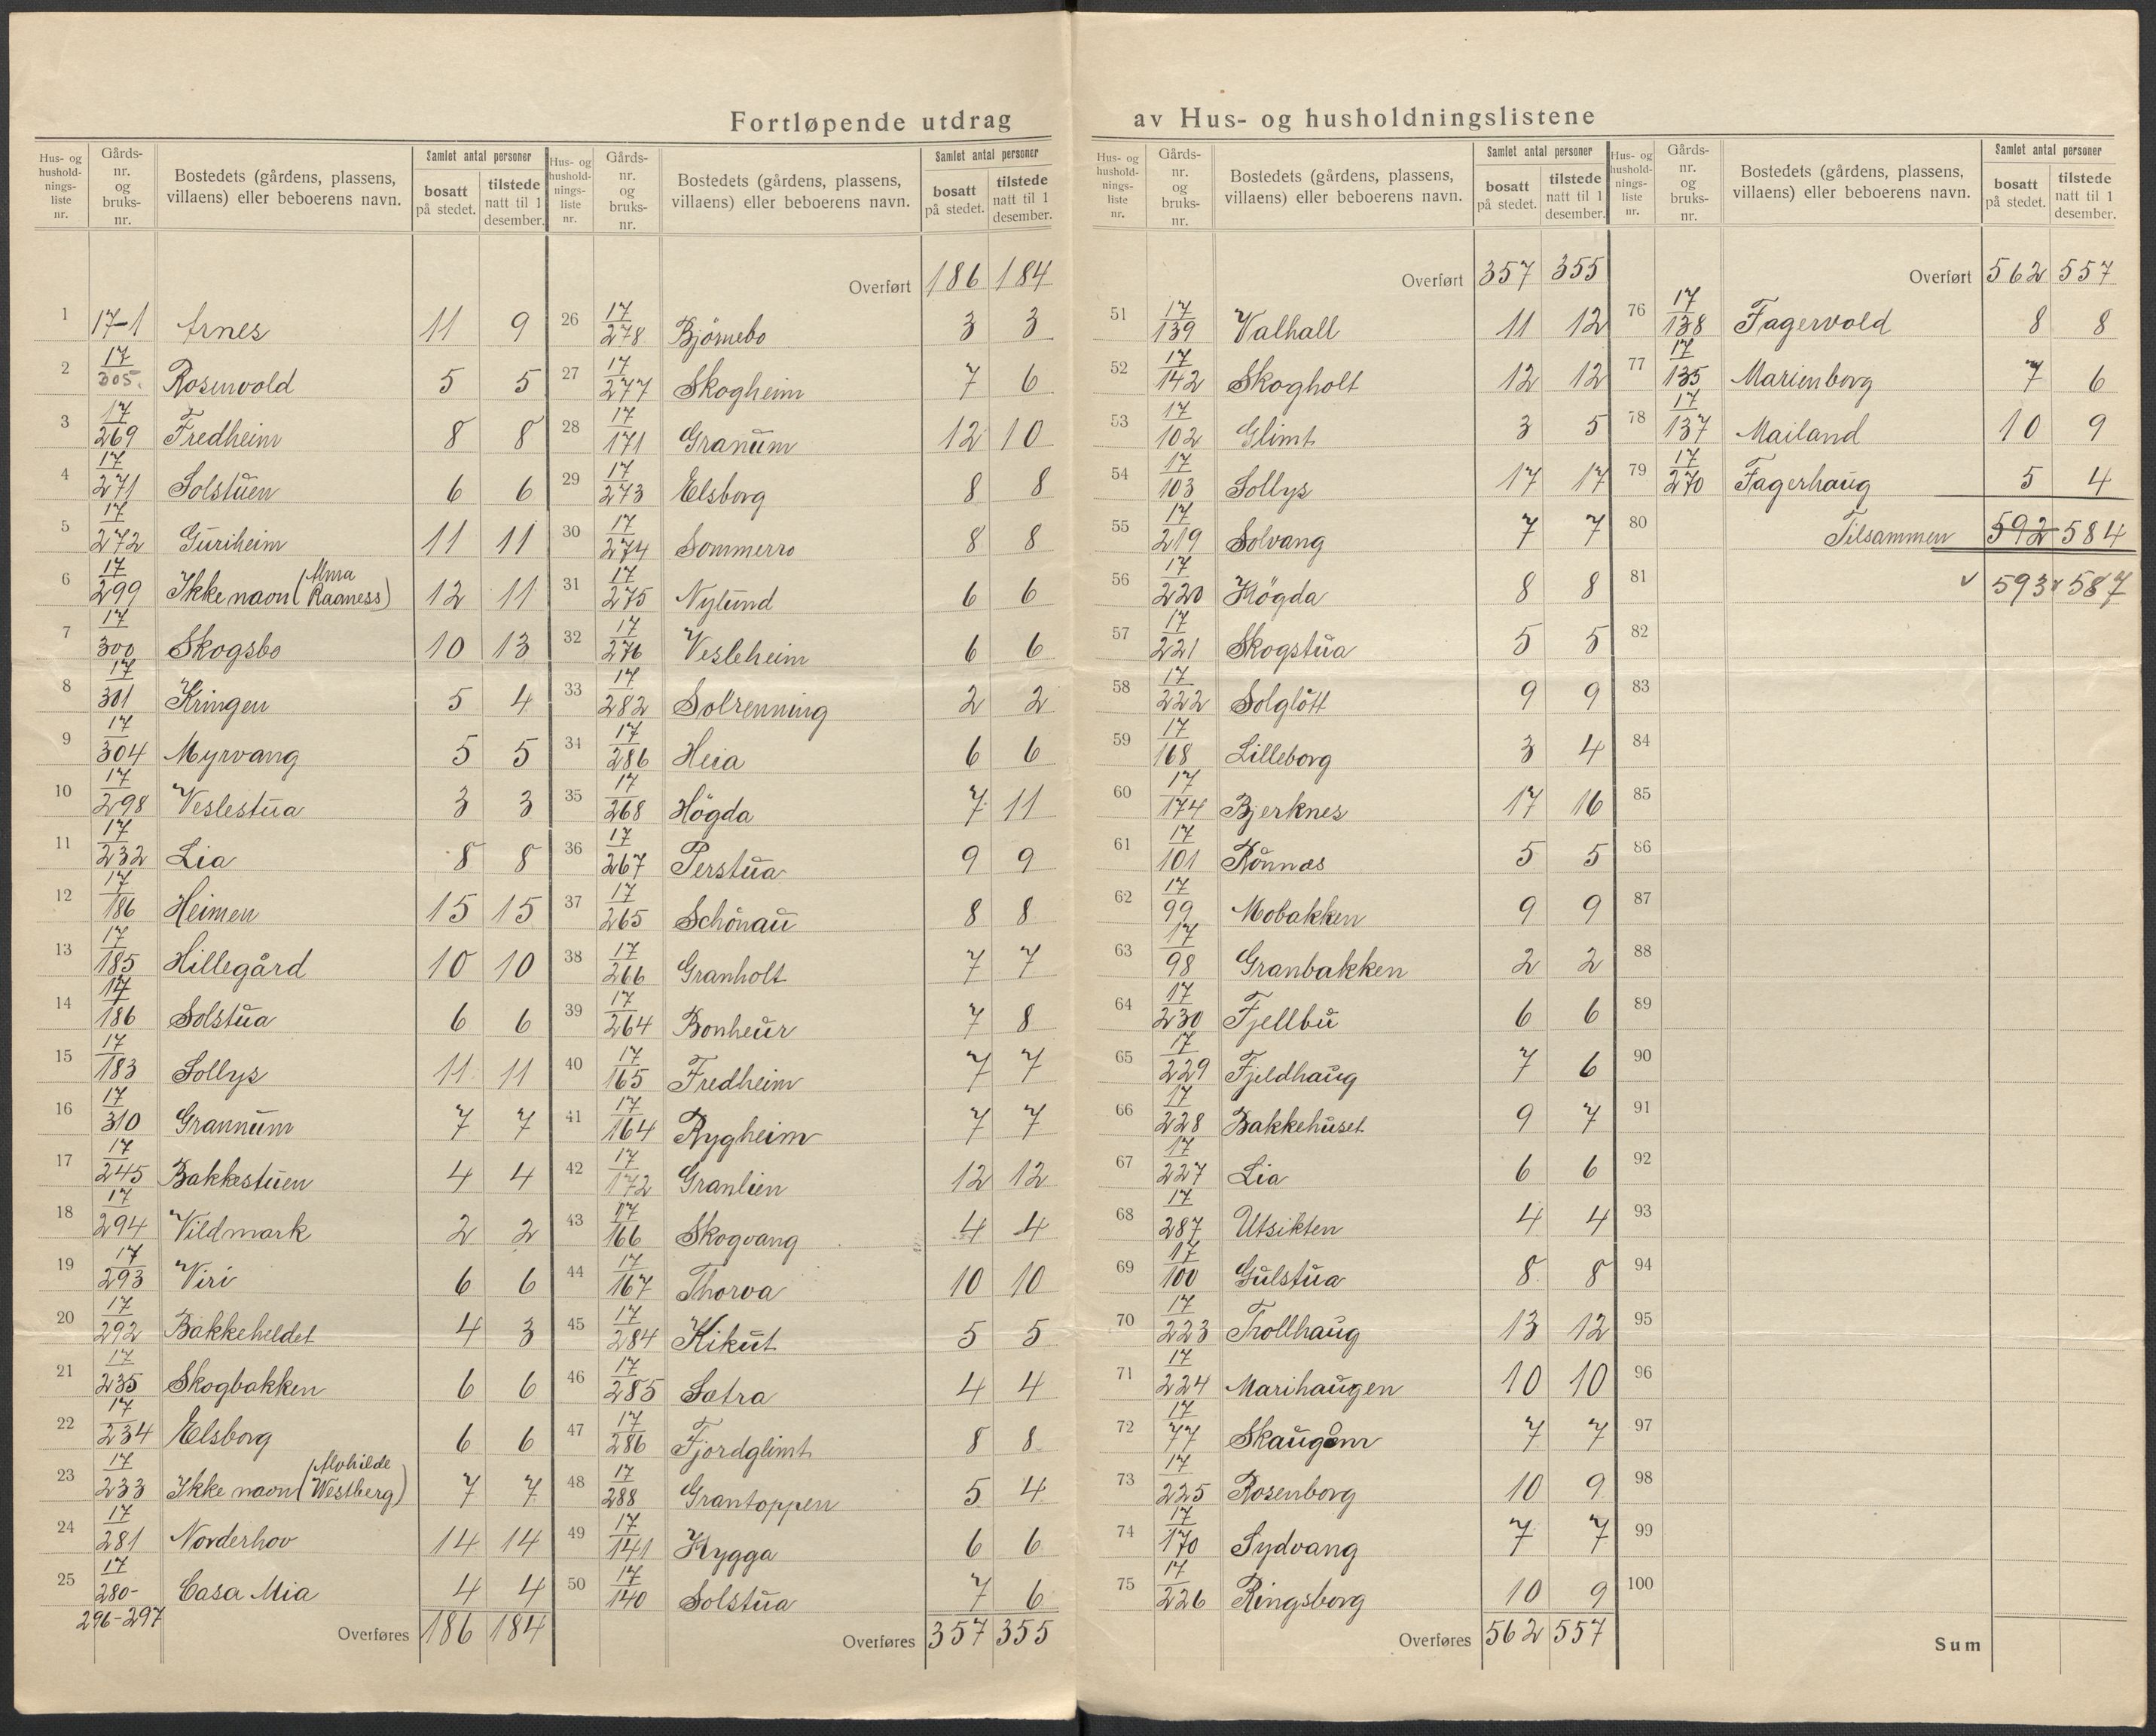 Fortløpende utdrag av Hus- og husholdningslistene
Hus- og husholdnings- liste nr. Gårds- nr. og bruks- nr. Bostedets (gårdens, plassens, villaens) eller beboerens navn. Samlet antal personer bosatt på stedet. tilstede natt til 1 desember.
1 17-1 Arnes 11 9
2 17/305. Rosenvold 5 5
3 17/269 Fredheim 8 8
4 17/271 Solstuen 6 6
5 17/272 Guriheim 11 11
6 17/299 Ikke navn (Alma Raaness) 12 11
7 17/300 Skogsbo 10 13
8 17/301 Kringen 5 4
9 17/304 Myrvang 5 5
10 17/298 Veslestua 3 3
11 17/232 Lia 8 8
12 17/186 Heimen 15 15
13 17/185 Hillegård 10 10
14 17/186 Solstua 6 6
15 17/183 Sollys 11 11
16 17/310 Grannum 7 7
17 17/245 Bakkestuen 4 4
18 17/294 Vildmark 2 2
19 17/293 Viri 6 6
20 17/292 Bakkeheldet 4 3
21 17/235 Skogbakken 6 6
22 17/234 Elsborg 6 6
23 17/233 Ikke navn (Alvhilde Westberg) 7 7
24 17/281 Norderhov 14 14
25 17/280- Casa Mia 4 4
296-297
Overføres 186 184
Hus- og husholdnings- liste nr. Gårds- nr. og bruks- nr. Bostedets (gårdens, plassens, villaens) eller beboerens navn. Samlet antal personer bosatt på stedet. tilstede natt til 1 desember.
Overført 186 184
26 17/278 Björnebo 3 3
27 17/277 Skogheim 7 6
28 17/171 Granum 12 10
29 17/273 Elsborg 8 8
30 17/274 Sommerro 8 8
31 17/275 Nylund 6 6
32 17/276 Vesleheim 6 6
33 17/282 Solrenning 2 2
34 17/286 Heia 6 6
35 17/268 Högda 7 11
36 17/267 Perstua 9 9
37 17/265 Schönau 8 8
38 17/266 Granholt 7 7
39 17/264 Bonheur 7 8
40 17/165 Fredheim 7 7
41 17/164 Rygheim 7 7
42 17/172 Granlien 12 12
43 17/166 Skogvang 4 4
44 17/167 Thorva 10 10
45 17/284 Kikut 5 5
46 17/285 Sætra 4 4
47 17/286 Fjordglimt 8 8
48 17/288 Grantoppen 5 4
49 17/141 Hygga 6 6
50 17/140 Solstua 7 6
Overføres 357 355
Hus- og husholdnings- liste nr. Gårds- nr. og bruks- nr. Bostedets (gårdens, plassens, villaens) eller beboerens navn. Samlet antal personer bosatt på stedet. tilstede natt til 1 desember.
Overført 357 355
51 17/139 Valhall 11 12
52 17/142 Skogholt 12 12
53 17/102 Glimt 3 5
54 17/103 Sollys 17 17
55 17/219 Solvang 7 7
56 17/220 Högda 8 8
57 17/221 Skogstua 5 5
58 17/222 Solglött 9 9
59 17/168 Lilleborg 3 4
60 17/174 Bjerknes 17 16
61 17/101 Rönnås 5 5
62 17/99 Mobakken 9 9
63 17/98 Granbakken 2 2
64 17/230 Fjellbu 6 6
65 17/229 Fjeldhaug 7 6
66 17/228 Bakkehuset 9 7
67 17/227 Lia 6 6
68 17/287 Utsikten 4 4
69 17/100 Gulstua 8 8
70 17/223 Trollhaug 13 12
71 17/224 Marihaugen 10 10
72 17/77 Skaugum 7 7
73 17/225 Rosenborg 10 9
74 17/170 Sydvang 7 7
75 17/226 Ringsborg 10 9
Overføres 562 557
Hus- og husholdnings- liste nr. Gårds- nr. og bruks- nr. Bostedets (gårdens, plassens, villaens) eller beboerens navn. Samlet antal personer bosatt på stedet. tilstede natt til 1 desember.
Overført 562 557
76 17/138 Fagervold 8 8
77 17/135 Marienborg 7 6
78 17/137 Mailand 10 9
79 17/270 Fagerhaug 5 4
80 Tilsammen 592 584
81 v 593 v 587
82
83
84
85
86
87
88
89
90
91
92
93
94
95
96
97
98
99
100
Sum